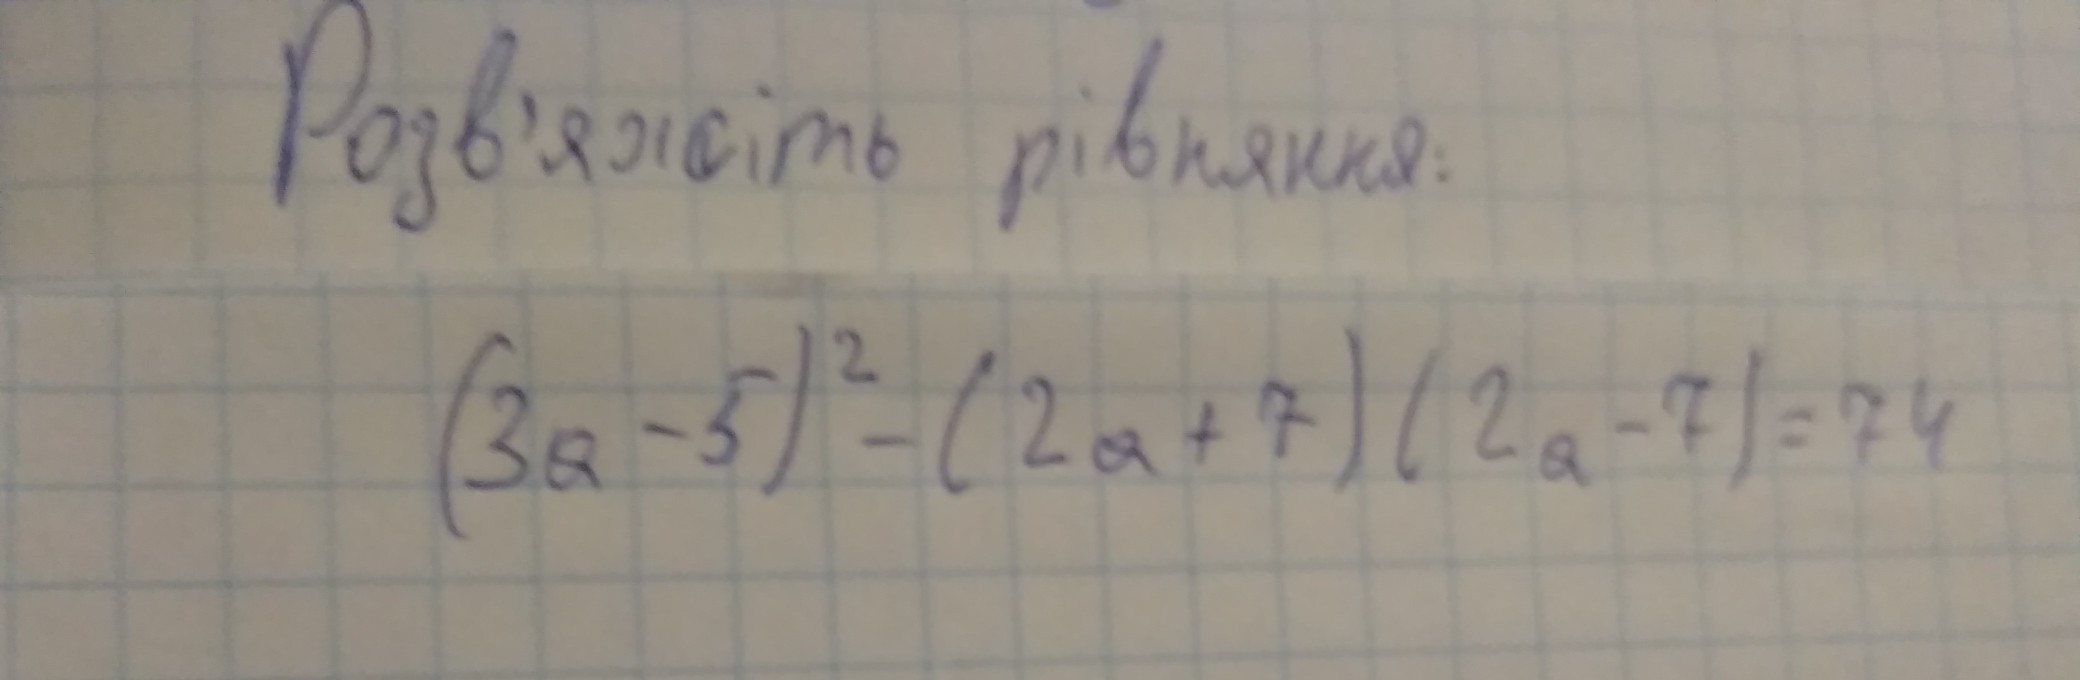 Розв'яжіть рівняння:
(3a-5)²-(2a+7)(2a-7)=74